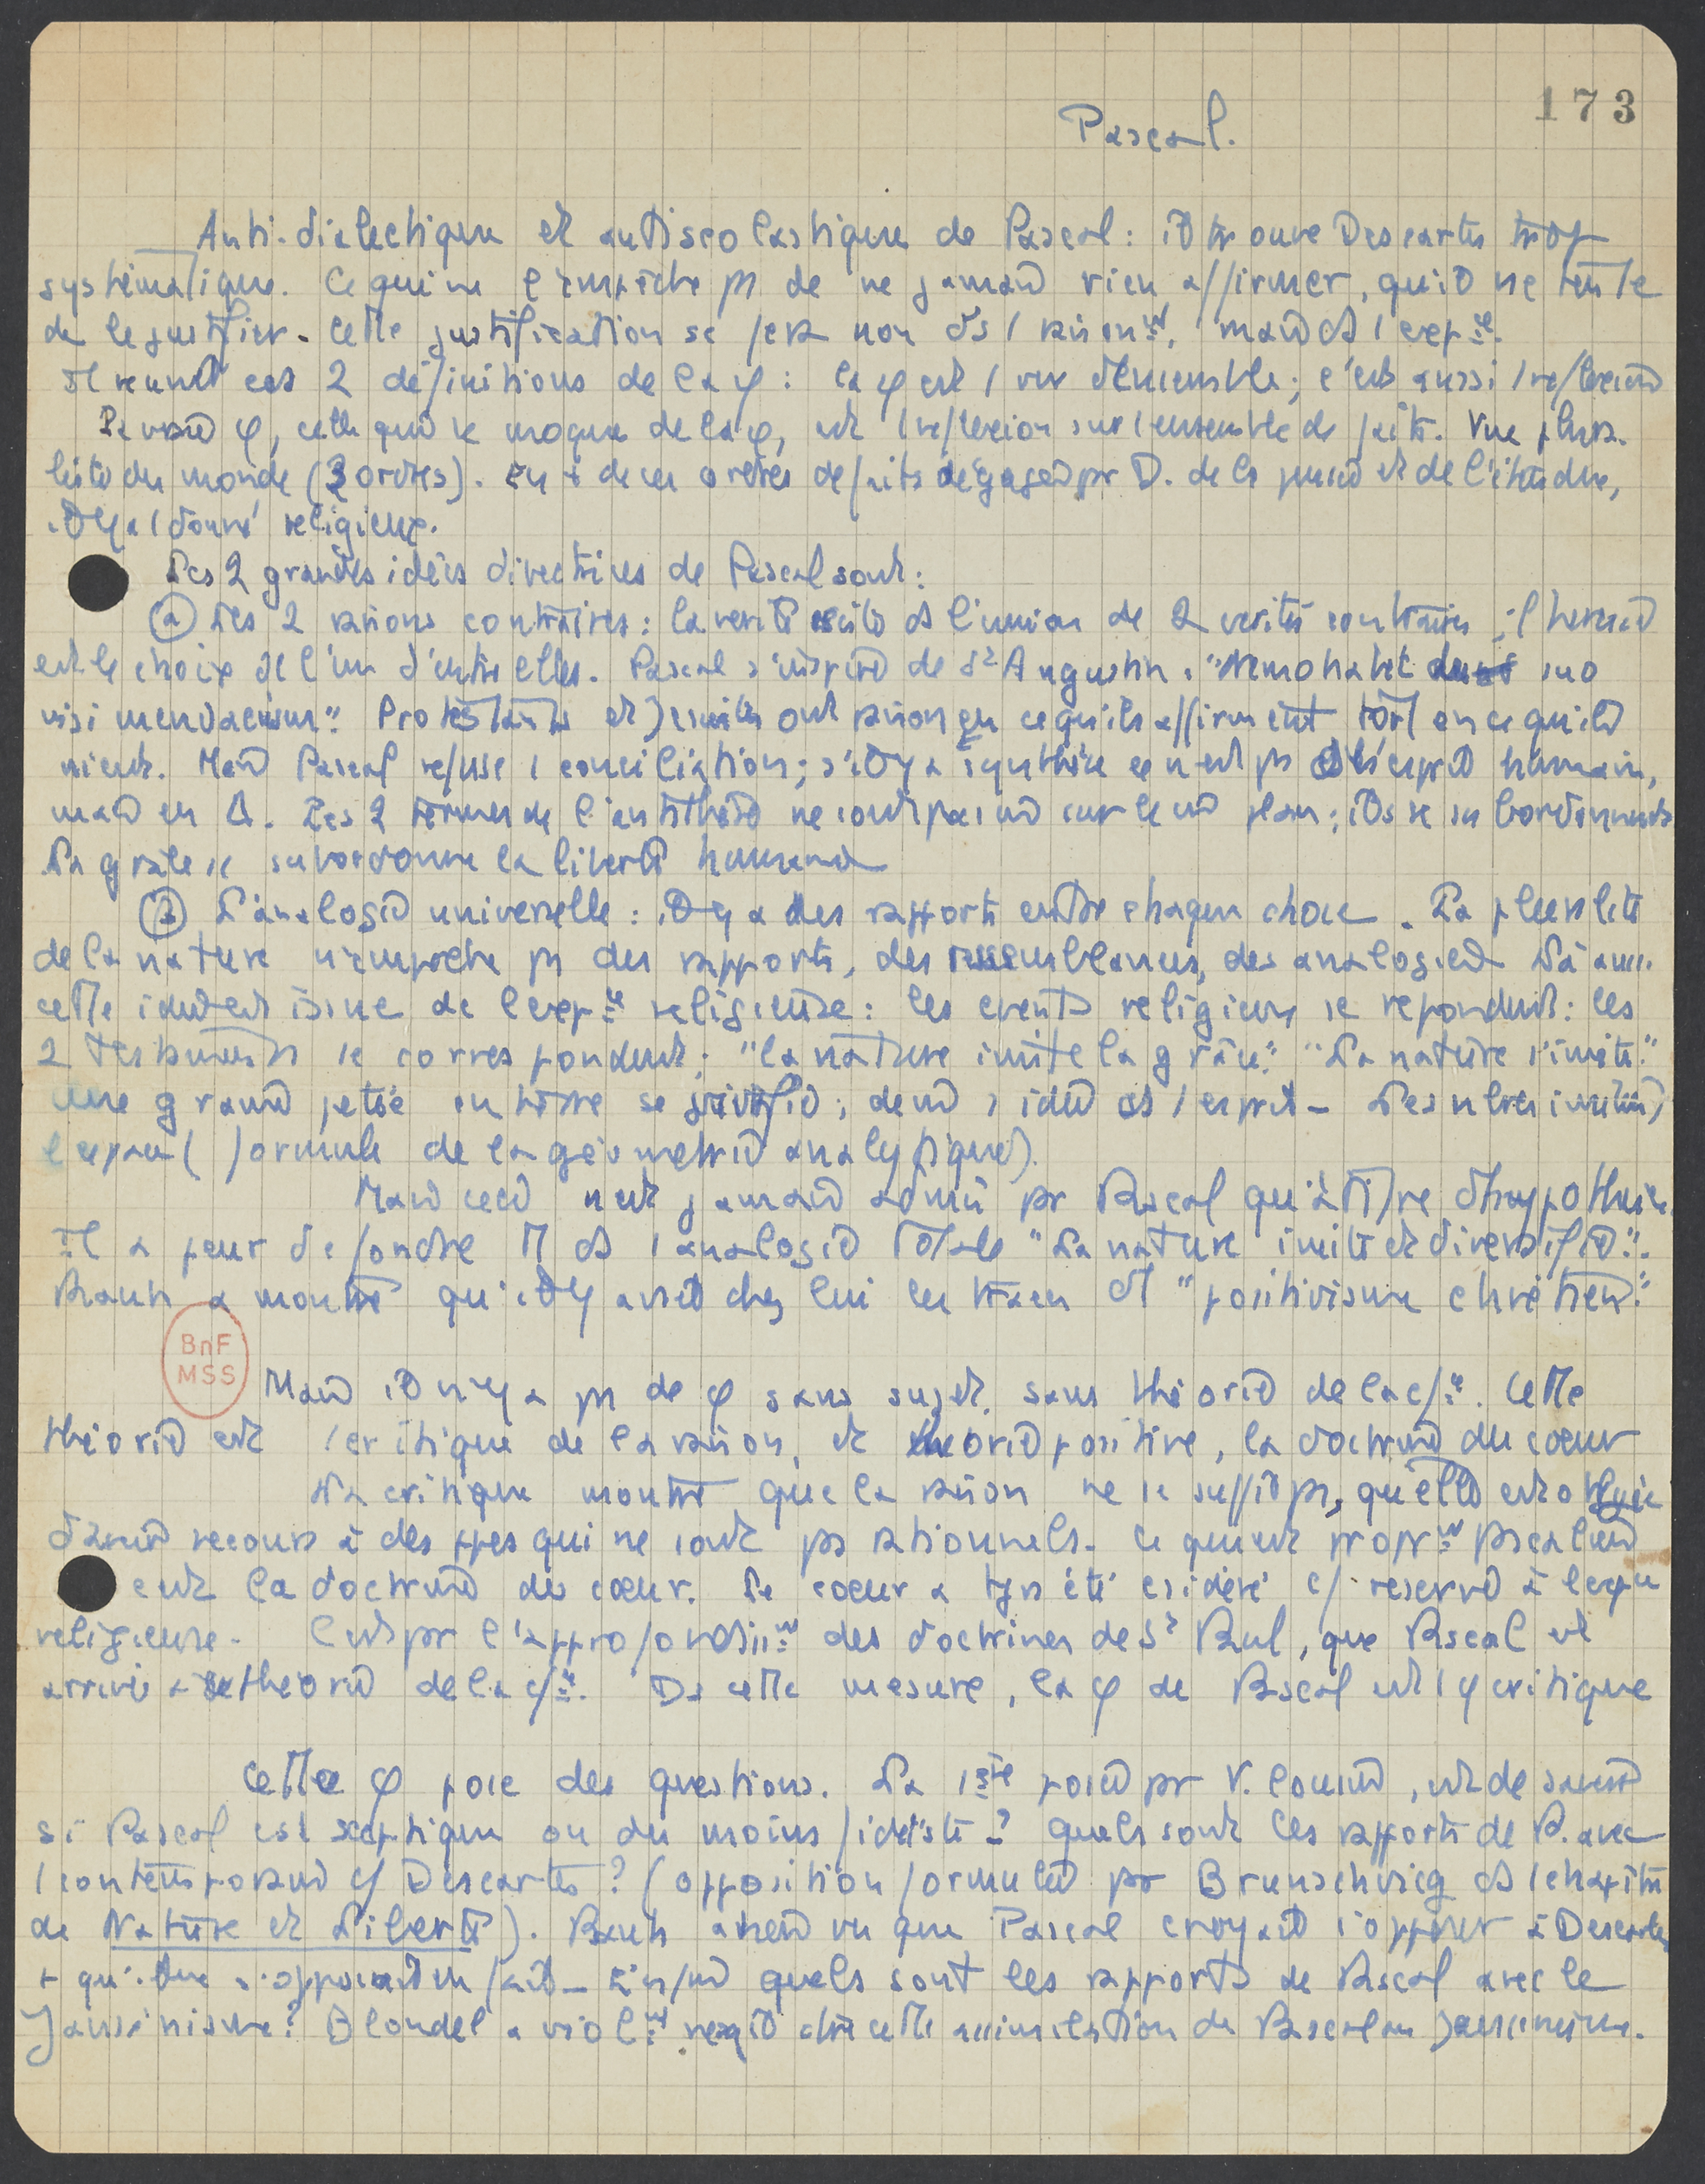 173
Pascal.
Anti-dialectique et antiscolastique de Pascal : il trouve Descartes trop
systématique. Ce qui ne l'empêche ps de ne jamais rien affirmer, qu'il ne tente
de le justifier. Cette justification se fera non ds l raisonnt, mais ds l expce.
Il réunit ces 2 définitions de la φ : la φ est l vue d'ensemble ; c'est aussi l réflexion
La vraie φ, celle qui se moque de la φ, est l réflexion sur l ensemble de faits. Vue plura-
liste du monde (3 ordres). En + de ces ordres de faits dégagés pr D. de la pensée et de l'étendue,
il y a l donné religieux.
Les 2 grandes idées directrices de Pascal sont :
① Les 2 raisons contraires : la vérité est ds l'union de 2 vérités contraires ; l'hérésie
est le choix de l'une d'entre elles. Pascal s'inspire de St Augustin. "Nemo habet de suo
nisi mendacium". Protestants et Jésuites ont raison en ce qu'ils affirment tort en ce qu'ils
nient. Mais Pascal refuse l conciliation ; s'il y a synthèse ce n'est ps ds l'esprit humain,
mais en Δ. Les 2 termes de l'antithèse ne sont pas mis sur le mê plan ; ils se subordonnent
La grâce se subordonne la liberté humaine
② L'analogie universelle : il y a des rapports entre chaque chose. La pluralité
de la nature n'empêche ps des rapports, des ressemblances, des analogies. Là aussi
cette idée est issue de l'expce religieuse : les événts religieux se répondent : les
2 testaments se correspondent ; "la nature imite la grâce". "La nature s'imite."
Une graine jetée en terre se fructifie ; de mê l idée ds l esprit _ Les nbres imitent
l'espace (formule de la géométrie analytique).
Mais ceci n'est jamais admis pr Pascal qu'à titre d'hypothèse.
Il a peur de fondre tt ds l analogie totale "La nature imite et diversifie".
Rauh a montré qu'il y avait chez lui les traces d'l "positivisme chrétien".
BnF
MSS
Mais il n'y a ps de φ sans sujet, sans théorie de la cfce. Cette
théorie est l critique de la raison, et théorie positive, la doctrine du cœur
La critique montre que la raison ne se suffit ps, qu'elle est obligée
d'avoir recours à des ppes qui ne sont ps rationnels. Ce qui est proprt pascalien
c'est la doctrine du cœur. Le cœur a tjrs été csidéré c/ réservé à l'expce
religieuse. C'est pr l'approfondisst des doctrines de St Paul, que Pascal est
arrivé à sa théorie de la cfce. Ds cette mesure, la φ de Pascal est l φ critique
Cette φ pose des questions. La 1ère posée pr V. Cousin, est de savoir
si Pascal est sceptique ou du moins fidéiste ? quels sont les rapports de P. avec
l contemporain c/ Descartes ? (opposition formulée pr Brunschvicg ds l chapitre
de Nature et Liberté). Rauh a bien vu que Pascal croyait s'opposer à Descartes
+ qu'il ne s'opposait en fait _ Enfin quels sont les rapports de Pascal avec le
Jansénisme ? Blondel a violt réagi ctre cette assimilation de Pascal au Jansénisme.